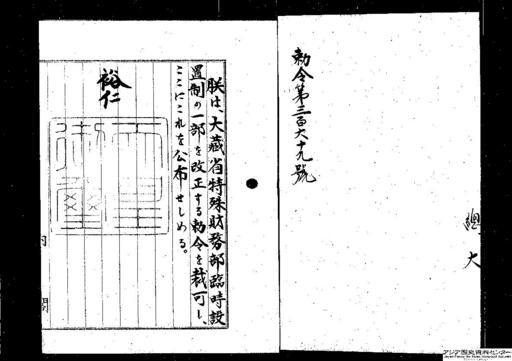 勅令第三百六十九號
總
大
朕は、大藏省特殊財務部臨時設
置制の一部を改正する勅令を裁可し、
ここにこれを公布せしめる。
裕仁
内
閣
アジア歴史資料センター